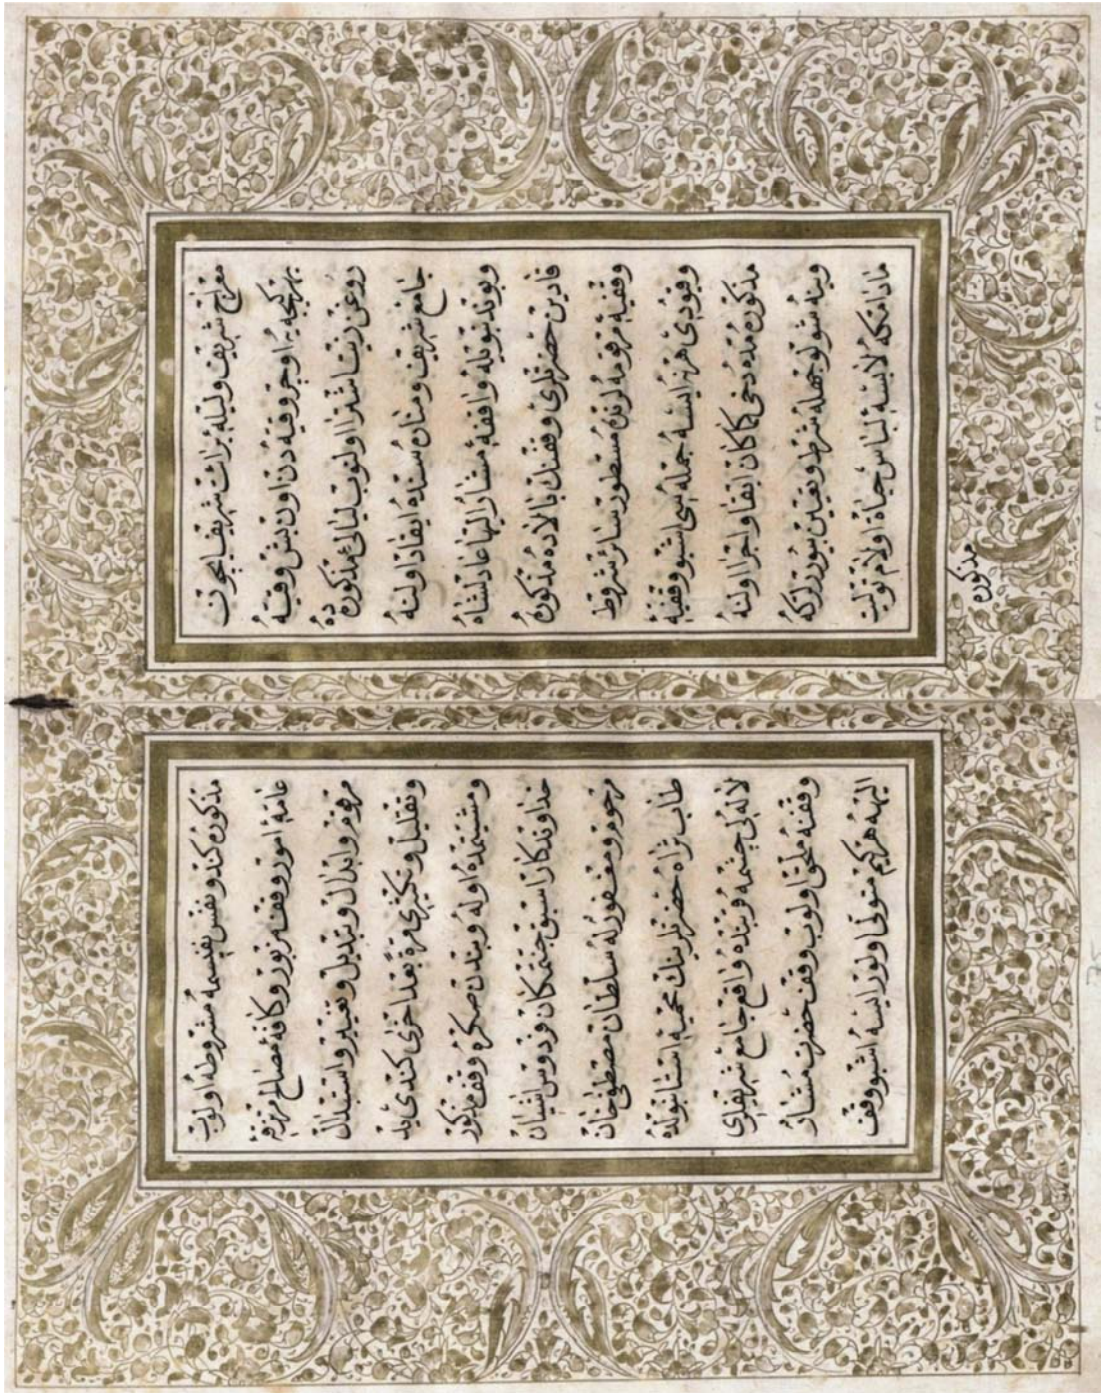 معراج شریف ولیله برات شریف ایچون
بهر کیجه یه اوچر وقیه دن اون بش وقیه
روغن زیت اشترا اولنوب لیالئ مذکوره ده
جامع شریف ومناره سنده ایقاد اولنه
واقفه مشار الیها عادلشاه
قادین حضرتلری وقفندن بالاده مذکوره
وقفیه مرقومه لرنده مسطور سائر شروط
وقیودی هر نه ایسه جمله سی اشبو وقفیه
مذکوره مده دخی کماکان ابقا واجرا اولنه
وینه شو توجهله شرط وتعیین بیوررلرکه
مادامکه لابسه لباس حیاة اولام تولیت
مذکوره
مذکوره کندو نفس نفیسمه مشروطه اولوب
عامه امور وقف مزبور وکافه مصالح
مرقوم وابدال وتبدیل وتغییر واستبدال
وتقلیل وتکثیری مرة بعد اخری کندی ید
ومشیتمده اوله وبندن صکره وقف مذکور
خداوندکار اسبق جنتمکان فردوس اشیان
مرحوم ومغفور له سلطان مصطفی خان
طاب ثراه حضرتلرینك محمیه استانبولده
لاله لی چشمه قربنده واقع جامع شریفلری
وقفنه ملحق اولوب وقف حضرت مشار
الیهه هر کیم متولی اولور ایسه اشبو وقف